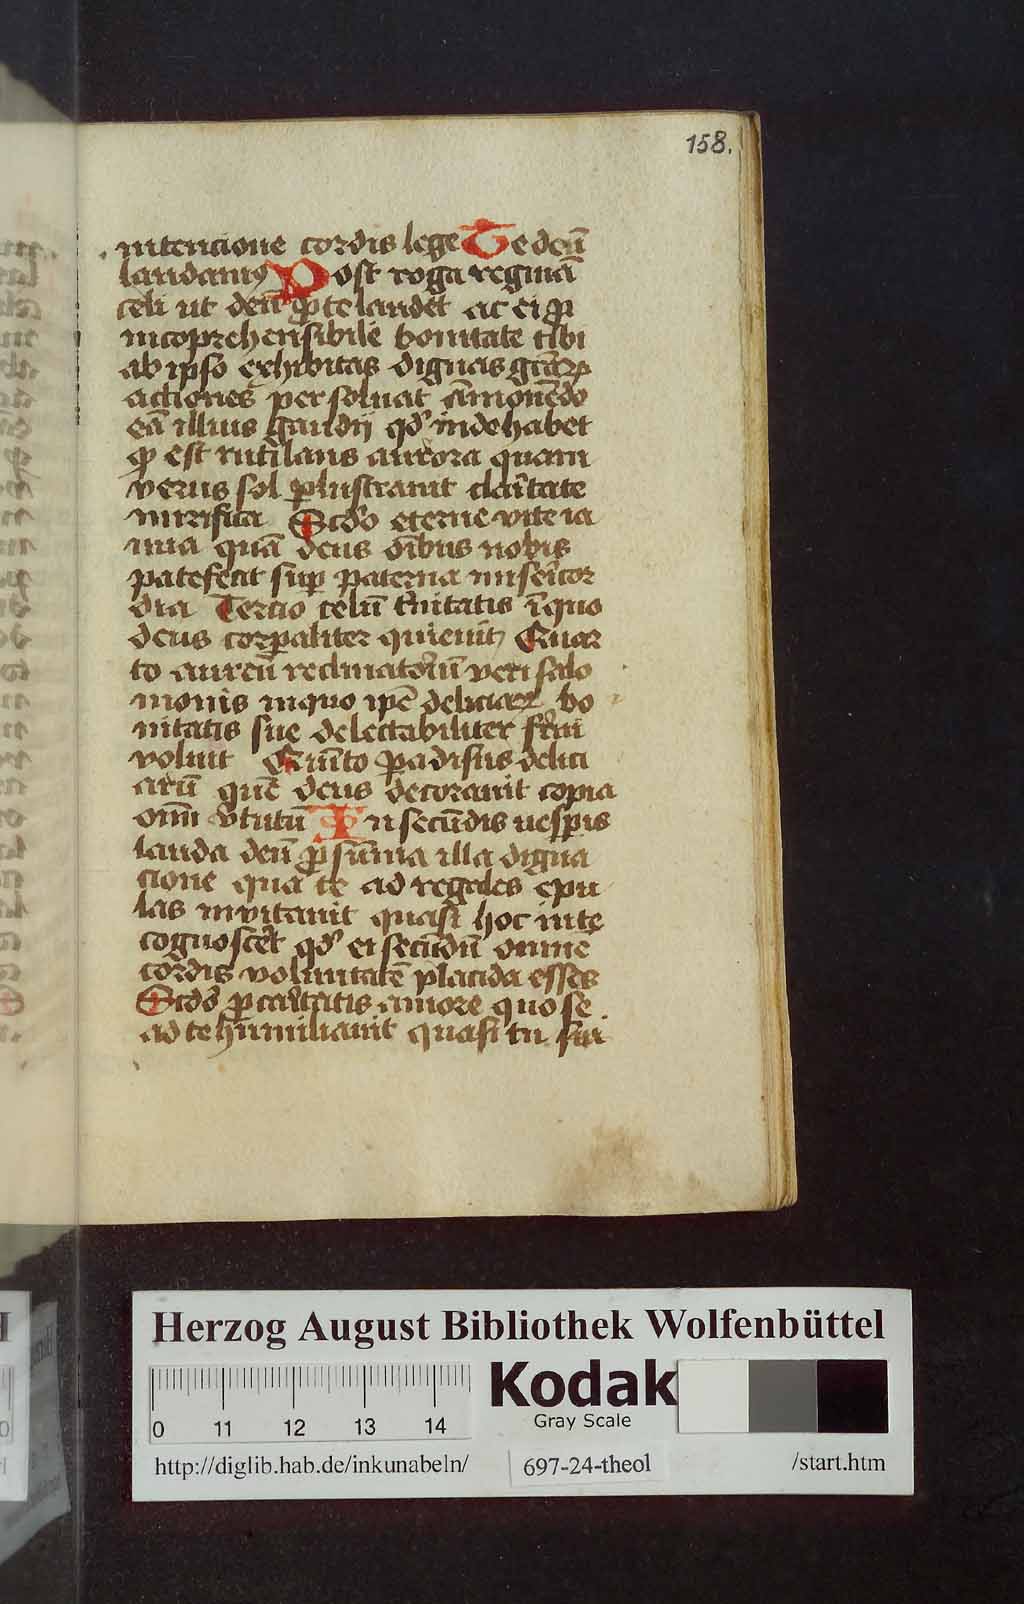 158.
intencione cordis lege Te deū
laudamꝰ Post roga reginā
celi ut deū ꝓ te laudet ac ei ꝓ
incōprehensibile bonitate tibi
ab ipso exhibitas dignas grāꝝ
actiones persoluat āmonēdo
eā illius gaudij qď inde habet
ꝙ est rutilans aurora quam
verus sol ꝑlustrauit claritate
mirifica Scďo eterne vite ia
nua quā deus oībus nobis
patefecit sua paterna misericor
dia Tercio celū trinitatis ī quo
deus corꝑaliter quieuit Quar
to aureū reclinatoriū veri salo
monis in quo ipē deliciaꝝ bo
nitatis sue delectabiliter frui
voluit Quīto ꝑadisus delici
arū quē deus decorauit copia
omī v̄tutū In secūdis vesꝑis
lauda deū ꝓ sūma illa digna
cione qua te ad regales epu
las inuitauit quasi hoc in te
cognosceret qď ei secūdū omnē
cordis voluntatē placida esses
Scďo ꝓ caritatis amore quo se
ad te humiliauit quasi tu sua
Herzog August Bibliothek Wolfenbüttel
0 11 12 13 14
Kodak
Gray Scale
http://diglib.hab.de/inkunabeln/ 697-24-theol /start.htm